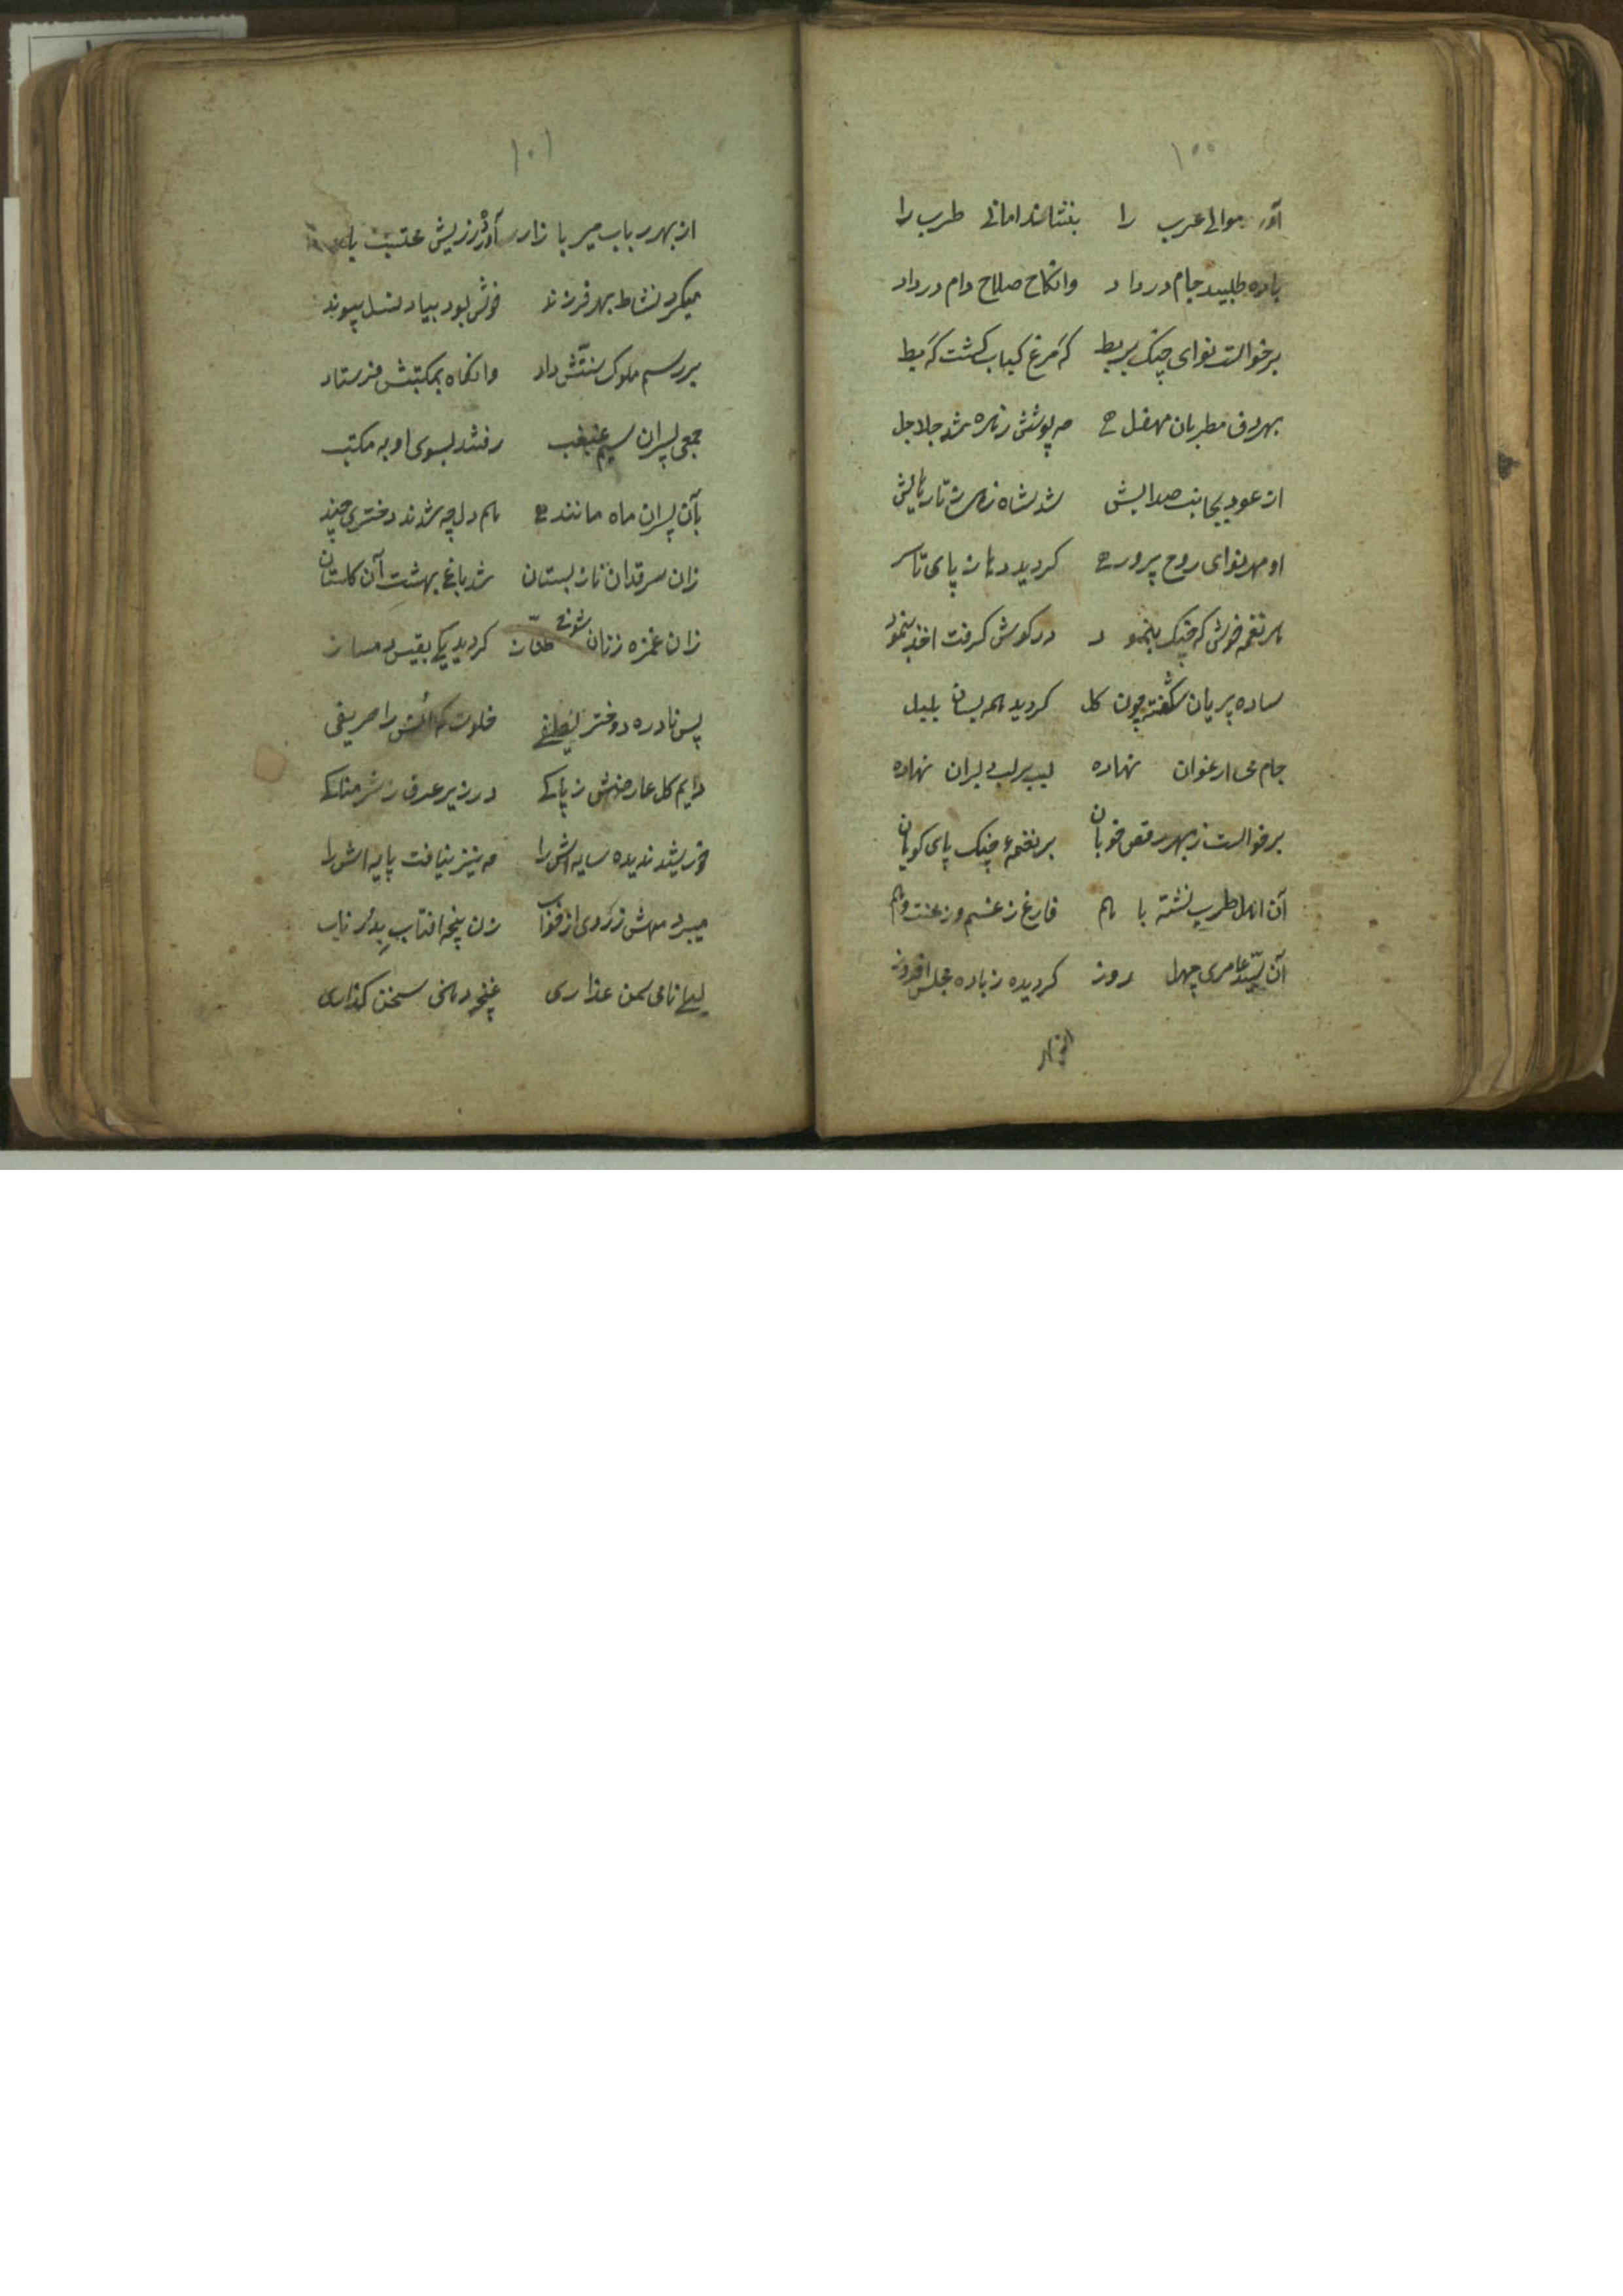 ۱۰۰
آورد موالی عرب را بنشاند امانی طرب را
باده طلبید جام در داد وانکاح صلاح دام در داد
برخواست نوای چنک بربط که مرغ کباب کشت که بط
بهر دف مطربان محفل مه پوشش زهره شد جلاجل
از عود بجانب صدایش شد شاه تارهایش
او بهر نوای روح پرور کردید دهان ز پای تا سر
هر نغمه خوش که چنک بنمود در کوش کرفت اخذ بنمود
ساده پریان شکفته چون کل کردید همه بسان بلبل
جام می ارغوان نهاده لب بر لب دلبران نهاده
برخواست ز بهر رقص خوبان بر نغمهء چنک پای کوبان
آن اهل طرب نشته با هم فارغ ز غم و ز محنت و هم
آن سید عامری چهل روز کردیده ز باده مجلس افروز
از بهر
۱۰۱
از بهر رباب میر بازار آورد زریش
میکرد نشاط بهر فرزند خوش بود بیاد نسل پیوند
بر رسم ملوک سنتش داد وانکاه بمکتبش فرستاد
جمعی پسران سیم غبغب رفتند بسوی او به مکتب
بآن پسران ماه مانند هم درس شدند دختری چند
زان سرو قدان ناز بستان شد باغ بهشت آن کلستان
زان غمزه زنان شوخ طناز کردید یکی بقیس دمساز
پس نادره دختر لطیفی خلوت که انس را حریفی
دایم کل عارضش ز پاکی در زیر عرق ز شرمناکی
خورشید ندیده سایه اش را مه نیز نیافت پایه اش را
میبرد مهش ز روی از خواب زن پنجه افتاب بدر تاب
لیلی نامی سمن عذاری غنچه دهنی سخن کذاری